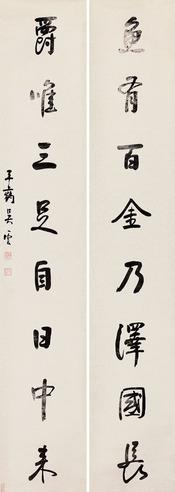 魚有百金乃澤國長
爵惟三足自日中來
平齋吳雲